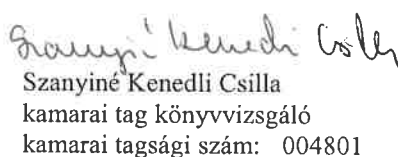 Szanyiné Kenedi Csilla
Szanyiné Kenedli Csilla
kamarai tag könyvvizsgáló
kamarai tagsági szám: 004801